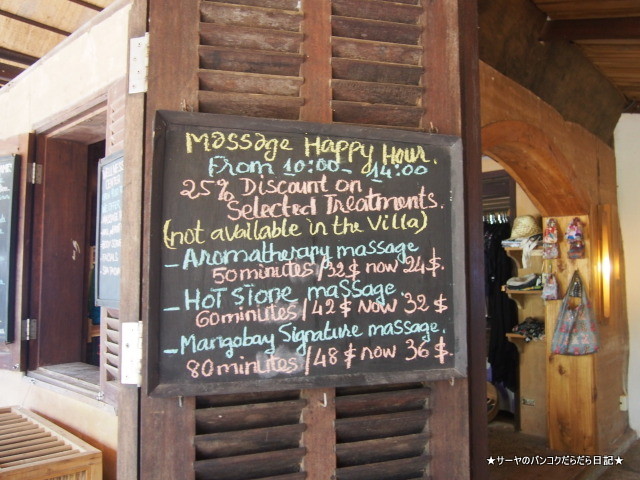 Massage Happy Hour.
From 10:00 - 14:00
25% Discount on
Selected Treatments.
(not available in the Villa)
- Aromatherapy massage
50 minutes / 32 $ now 24 $.
- HOT STONE massage.
60 minutes / 42 $ NOW 32 $
- Mangobay Signature massage.
80 minutes / 48 $ now 36 $.
★サーヤのバンコクだらだら日記★